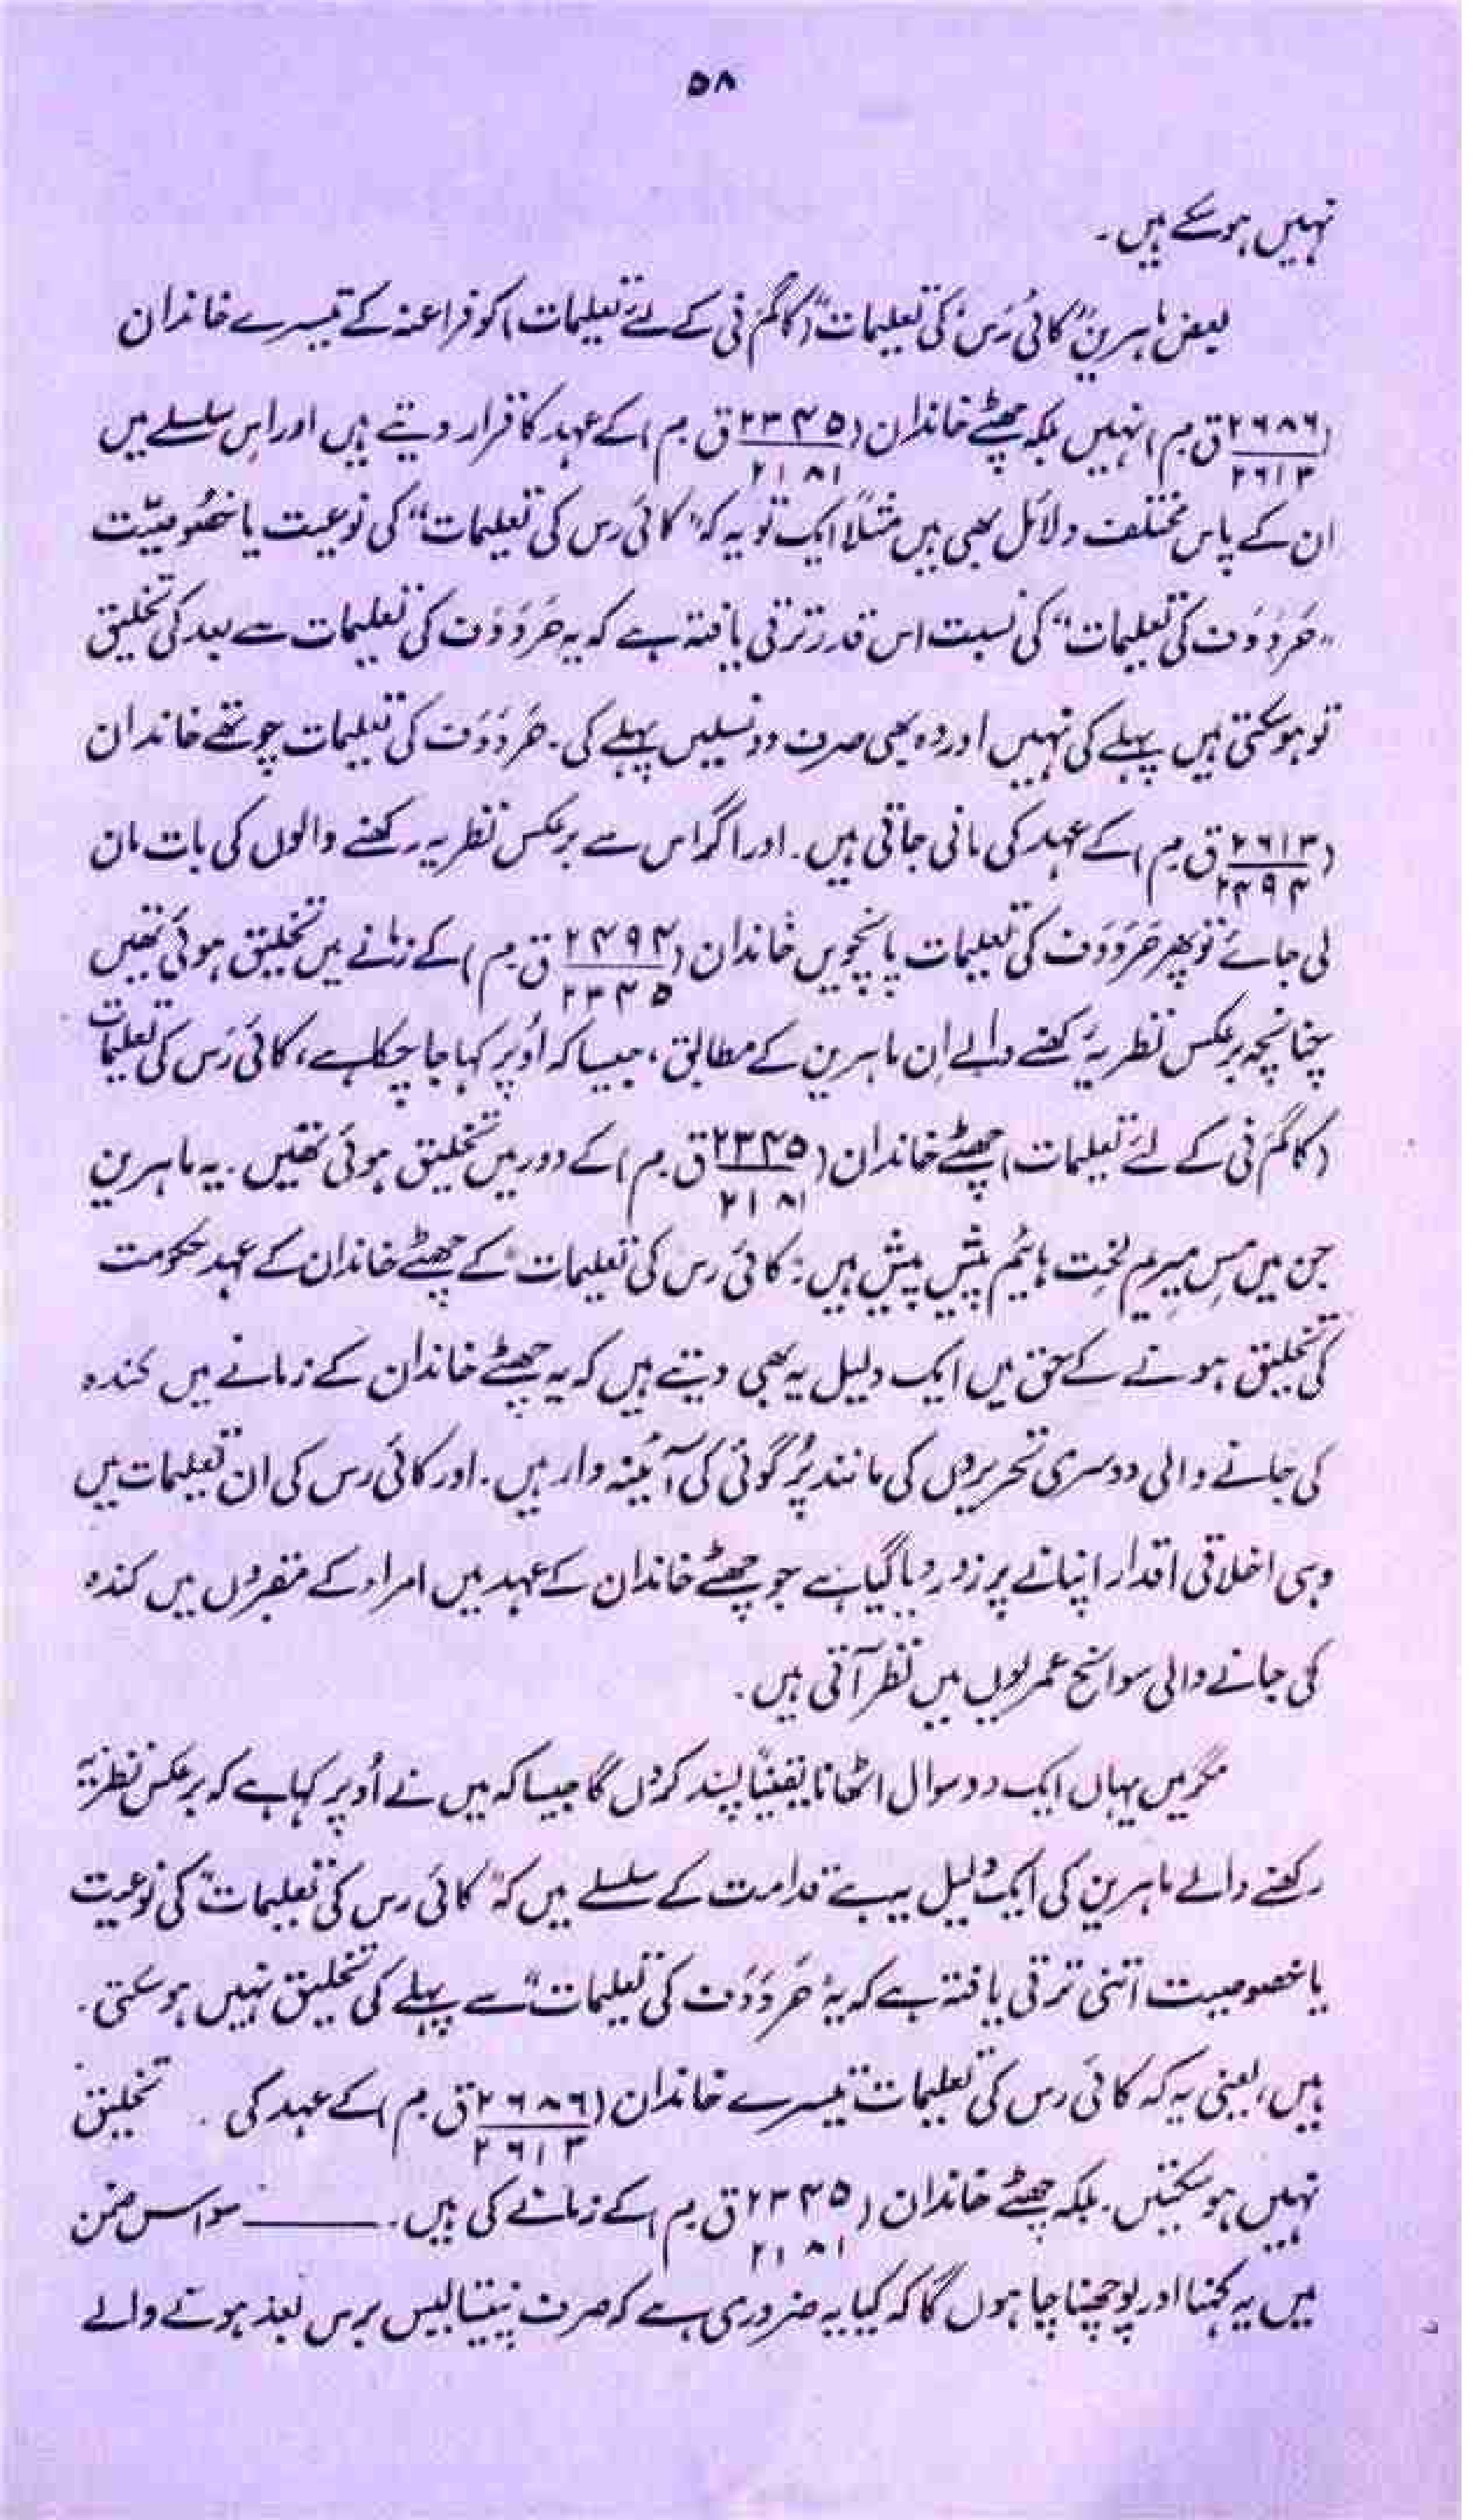 ۵۸
نہیں ہوسکے ہیں۔
بعض ماہرین "کائی رَس کی تعلیمات" (کاگم نی کے لئے تعلیمات) کو فراعنہ کے تیسرے خاندان
(۲۶۸۶/۲۶۱۳ ق م) نہیں بلکہ چھٹے خاندان (۲۳۴۵/۲۱۸۱ ق م) کے عہد کا قرار دیتے ہیں اور اس سلسلے میں
ان کے پاس مختلف دلائل بھی ہیں مثلاً ایک تو یہ کہ "کائی رس کی تعلیمات" کی نوعیت یا خصُوصیّت
"حَردَدَف کی تعلیمات" کی نسبت اس قدر ترقی یافتہ ہے کہ یہ حَردَدَف کی تعلیمات سے بعد کی تخلیق
تو ہو سکتی ہیں پہلے کی نہیں اور وہ بھی صرف دو نسلیں پہلے کی۔ حَردَدَف کی تعلیمات چوتھے خاندان
(۲۶۱۳/۲۴۹۴ ق م) کے عہد کی مانی جاتی ہیں۔ اور اگر اس سے برعکس نظریہ رکھنے والوں کی بات مان
لی جائے تو پھر حَردَدَف کی تعلیمات پانچویں خاندان (۲۴۹۴/۲۳۴۵ ق م) کے زمانے میں تخلیق ہوئی تھیں
چنانچہ برعکس نظریہ رکھنے والے اِن ماہرین کے مطابق، جیسا کہ اُوپر کہا جا چکا ہے، کائی رَس کی تعلیمات
(کاگم نی کے لئے تعلیمات) چھٹے خاندان (۲۳۴۵/۲۱۸۱ ق م) کے دور میں تخلیق ہوئی تھیں۔ یہ ماہرین
جن میں مس میریم لخت ہائیم پیش پیش ہیں: کائی رس کی تعلیمات" کے چھٹے خاندان کے عہد حکومت
کی تخلیق ہونے کے حق میں ایک دلیل یہ بھی دیتے ہیں کہ یہ چھٹے خاندان کے زمانے میں کندہ
کی جانے والی دوسری تحریروں کی مانند پُر گوئی کی آئینہ دار ہیں۔ اور کائی رس کی ان تعلیمات میں
وہی اخلاقی اقدار اپنانے پر زور دیا گیا ہے جو چھٹے خاندان کے عہد میں امراء کے مقبروں میں کندہ
کی جانے والی سوانح عمریوں میں نظر آتی ہیں۔
مگر میں یہاں ایک دو سوال اٹھانا یقیناً پسند کروں گا جیسا کہ میں نے اُوپر کہا ہے کہ برعکس نظریہ
رکھنے والے ماہرین کی ایک دلیل یہ ہے قدامت کے سلسلے میں کہ "کائی رس کی تعلیمات" کی نوعیت
یا خصوصیت اتنی ترقی یافتہ ہے کہ یہ "حَردَدَف کی تعلیمات" سے پہلے کی تخلیق نہیں ہو سکتی۔
ہیں، یعنی یہ کہ کائی رس کی تعلیمات تیسرے خاندان (۲۶۸۶/۲۶۱۳ ق م) کے عہد کی تخلیق
نہیں ہو سکتیں۔ بلکہ چھٹے خاندان (۲۳۴۵/۲۱۸۱ ق م) کے زمانے کی ہیں۔ ——— سو اس ضمن
میں یہ کہنا اور پوچھنا چاہوں گا کہ کیا یہ ضروری ہے کہ صرف پینتالیس برس بعد ہونے والے